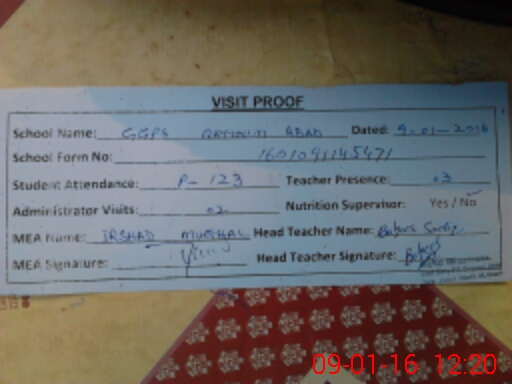 VISIT PROOF
School Name: GGPS QAYIOUM ABAD Dated: 9-01-2016
School Form No: 1601091145471
Student Attendance: P-123 Teacher Presence: 03
Administrator Visits: 02 Nutrition Supervisor: Yes / No
MEA Name: IRSHAD MUGHAL Head Teacher Name:
MEA Signature: Head Teacher Signature:
09-01-16 12:20